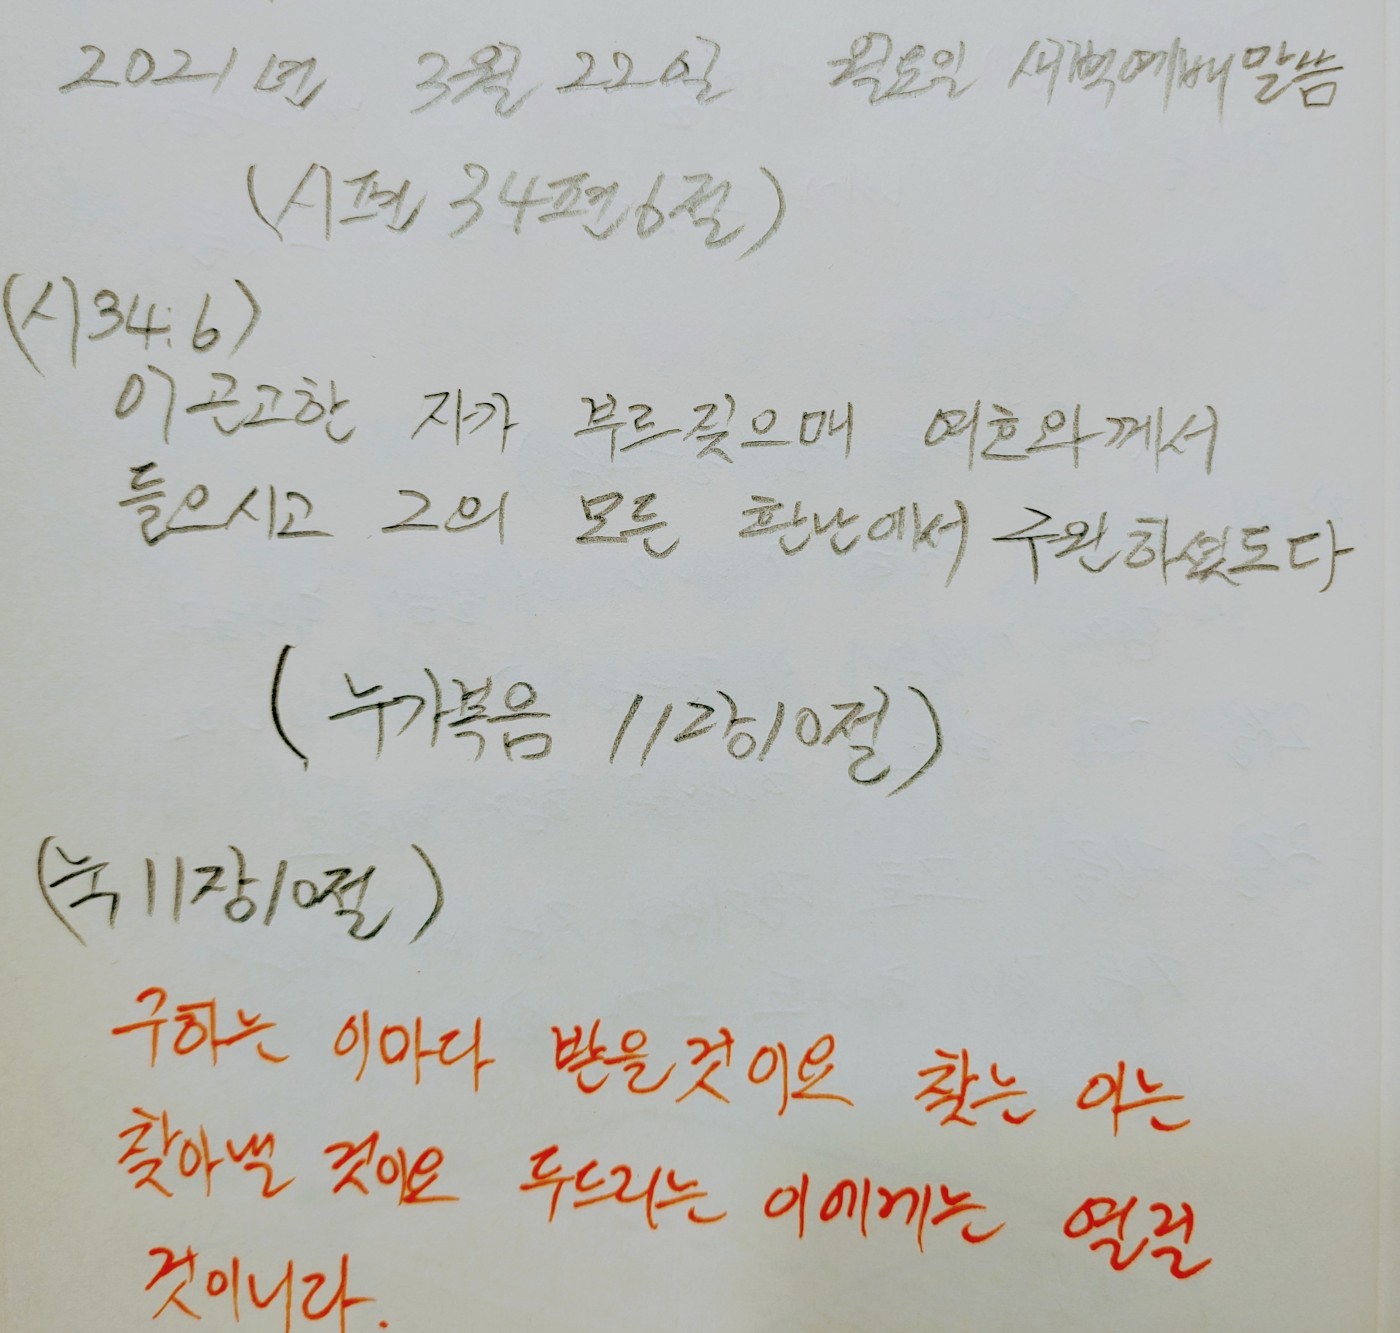 2021년 3월 22일 월요일 새벽예배말씀
(시편 34편6절)
(시34:6)
이곤고한 자가 부르짖으매 여호와께서
들으시고 그의 모든 환난에서 구원하셨도다
(누가복음 11장10절)
(눅11장10절)
구하는 이마다 받을것이요 찾는 이는
찾아낼 것이요 두드리는 이에게는 열릴
것이니라.